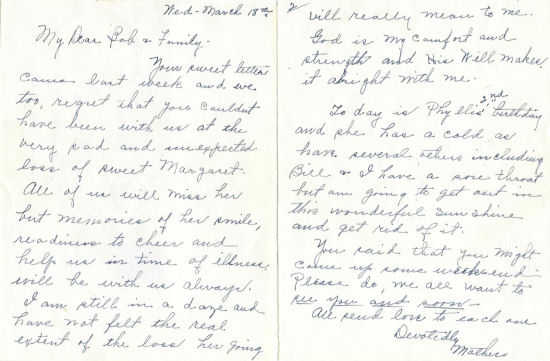 Wed - March 18th
My Dear Bob & Family -
Your sweet letter
came last week and we
too, regret that you couldn't
have been with us at the
very sad and unexpected
loss of sweet Margaret.
All of us will miss her
but memories of her smile,
readiness to cheer and
help us in time of illness,
will be with us always.
I am still in a daze and
have not felt the real
extent of the loss her going
2
will really mean to me.
God is my comfort and
strength and His Will makes
it alright with me.
To day is Phyllis' 2nd birthday
and she has a cold as
have several others including
Bill & I have a sore throat
but am going to get out in
this wonderful sun shine
and get rid of it.
You said that you might
come up some weekend -
Please do, we all want to
see you and soon -
All send love to each one
Devotedly
Mother